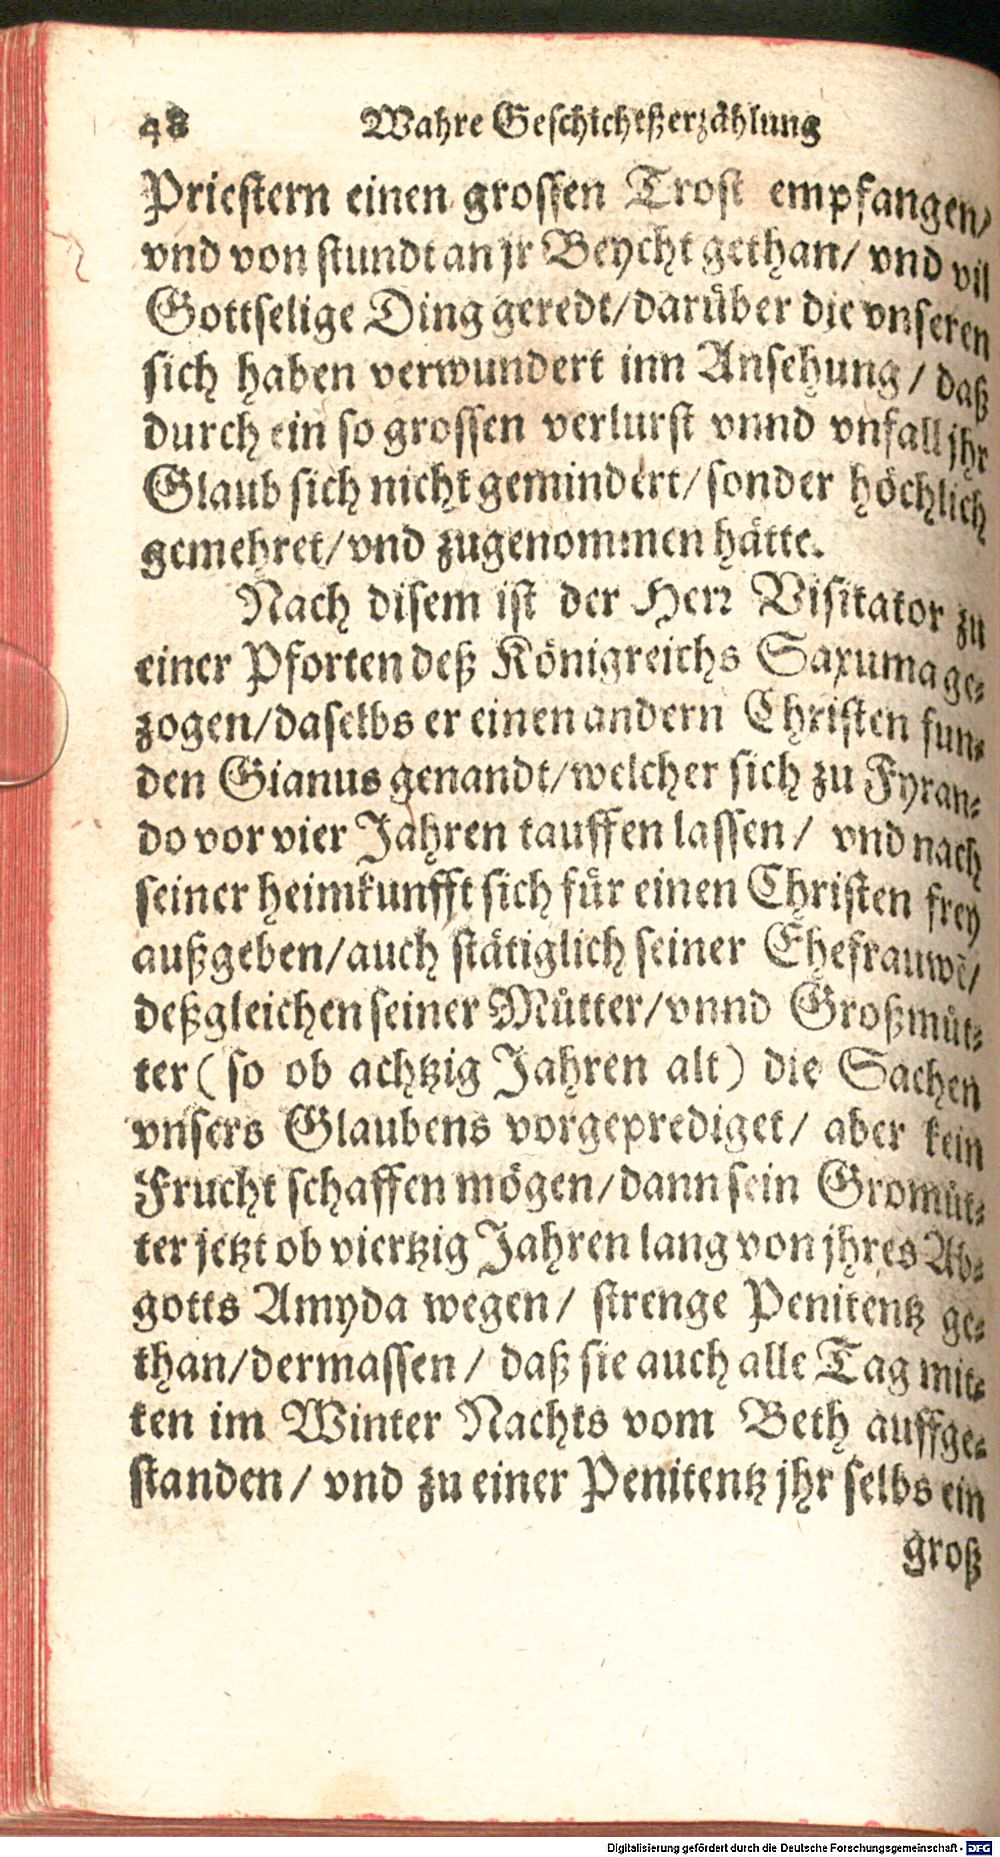 48 Wahre Geschichtßerzählung
Priestern einen grossen Trost empfangen/
vnd von stundt an jr Beycht gethan/ vnd vil
Gottselige Ding geredt/darüber die vnseren
sich haben verwundert inn Ansehung/ daß
durch ein so grossen verlurst vnnd vnfall jhr
Glaub sich nicht gemindert/sonder höchlich
gemehret/vnd zugenommen hätte.
Nach disem ist der Herr Visitator zu
einer Pforten deß Königreichs Saxuma ge-
zogen/daselbs er einen andern Christen fun-
den Gianus genandt/welcher sich zu Fyran-
do vor vier Jahren tauffen lassen/ vnd nach
seiner heimkunfft sich für einen Christen frey
außgeben/auch stätiglich seiner Ehefrauwẽ/
deßgleichen seiner Mütter/vnnd Großmüt-
ter (so ob achtzig Jahren alt) die Sachen
vnsers Glaubens vorgeprediget/ aber kein
Frucht schaffen mögen/dann sein Gromüt-
ter jetzt ob viertzig Jahren lang von jhres Ab-
gotts Amyda wegen/ strenge Penitentz ge-
than/dermassen/ daß sie auch alle Tag mit-
ten im Winter Nachts vom Beth auffge-
standen/ vnd zu einer Penitentz jhr selbs ein
groß
Digitalisierung gefördert durch die Deutsche Forschungsgemeinschaft - DFG